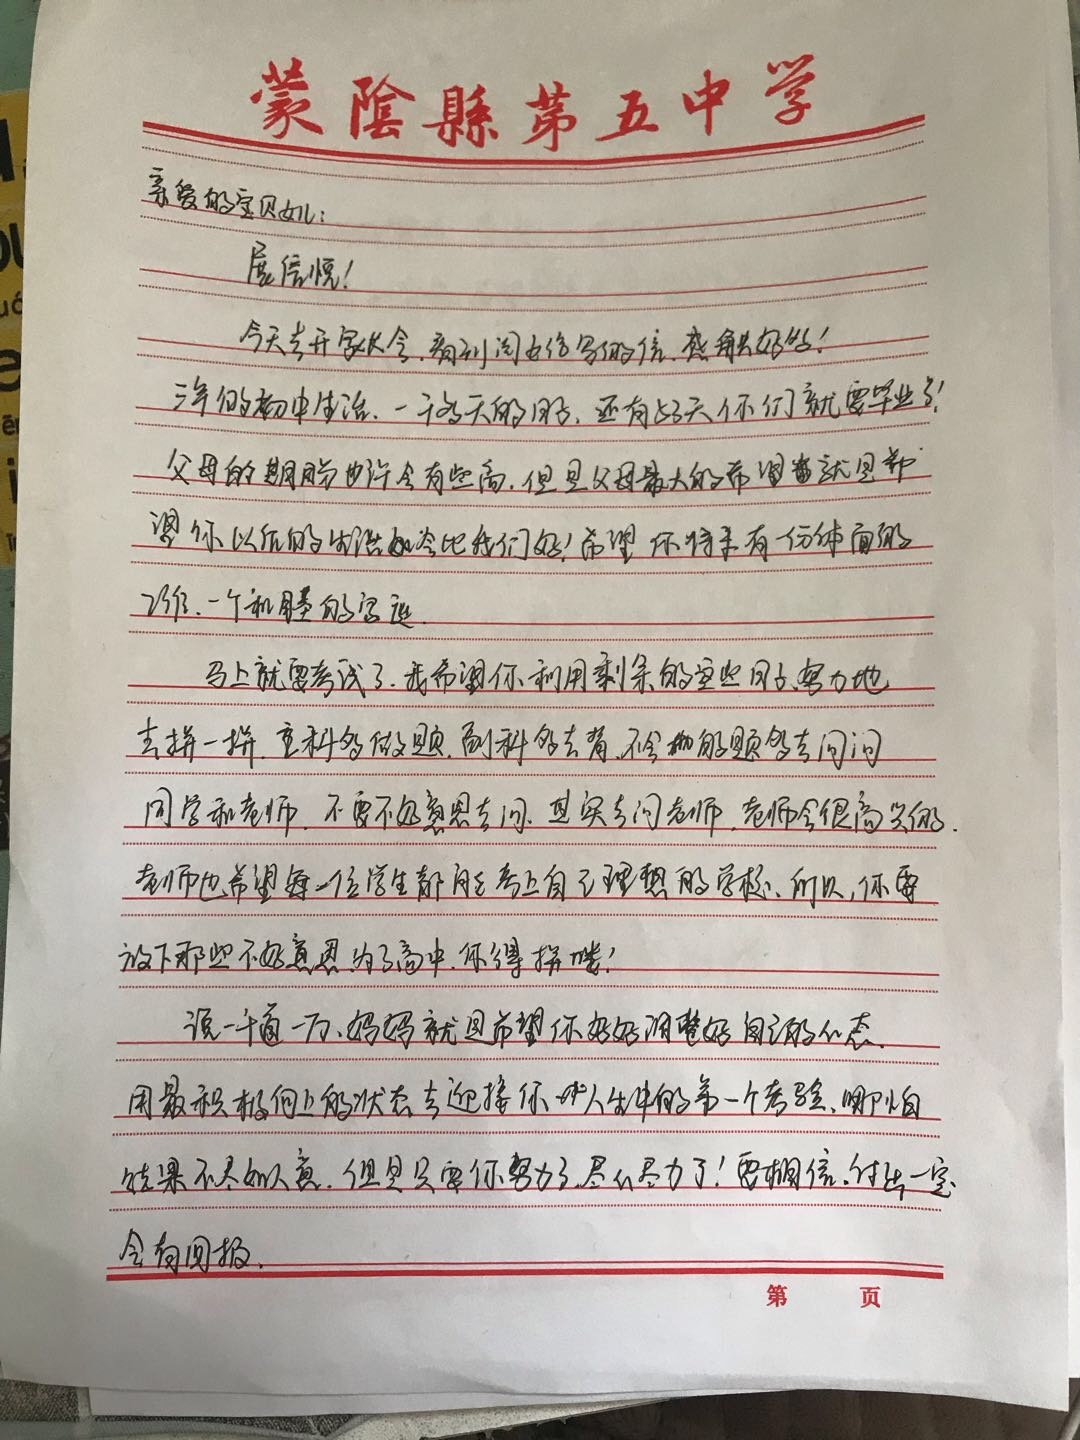 蒙陰縣第五中学
亲爱的宝贝女儿：
展信悦！
今天去开家长会，看到闺女给写的信，感触好些！
三年的初中生活，一千多天的日子，还有53天你们就要毕业了！
父母的期盼也许会有些高，但是父母最大的希望就是希
望你以后的生活如今比我们好！希望你将来有一份体面的
工作，一个和睦的家庭
马上就要考试了，我希望你利用剩余的这些日子，努力地
去拼一拼，主科多做题，副科多去背，不会的题多去问问
同学和老师，不要不好意思去问，其实去问老师，老师会很高兴的，
老师也希望每一位学生都能考上自己理想的学校，所以，你要
放下那些不好意思，为了高中，你得拼喽！
说一千道一万，妈妈就是希望你好好调整好自己的心态，
用最积极向上的状态去迎接你人生中的第一个考验，哪怕
结果不尽如人意，但是只要你努力了，尽心尽力了！要相信，付出一定
会有回报，
第 页